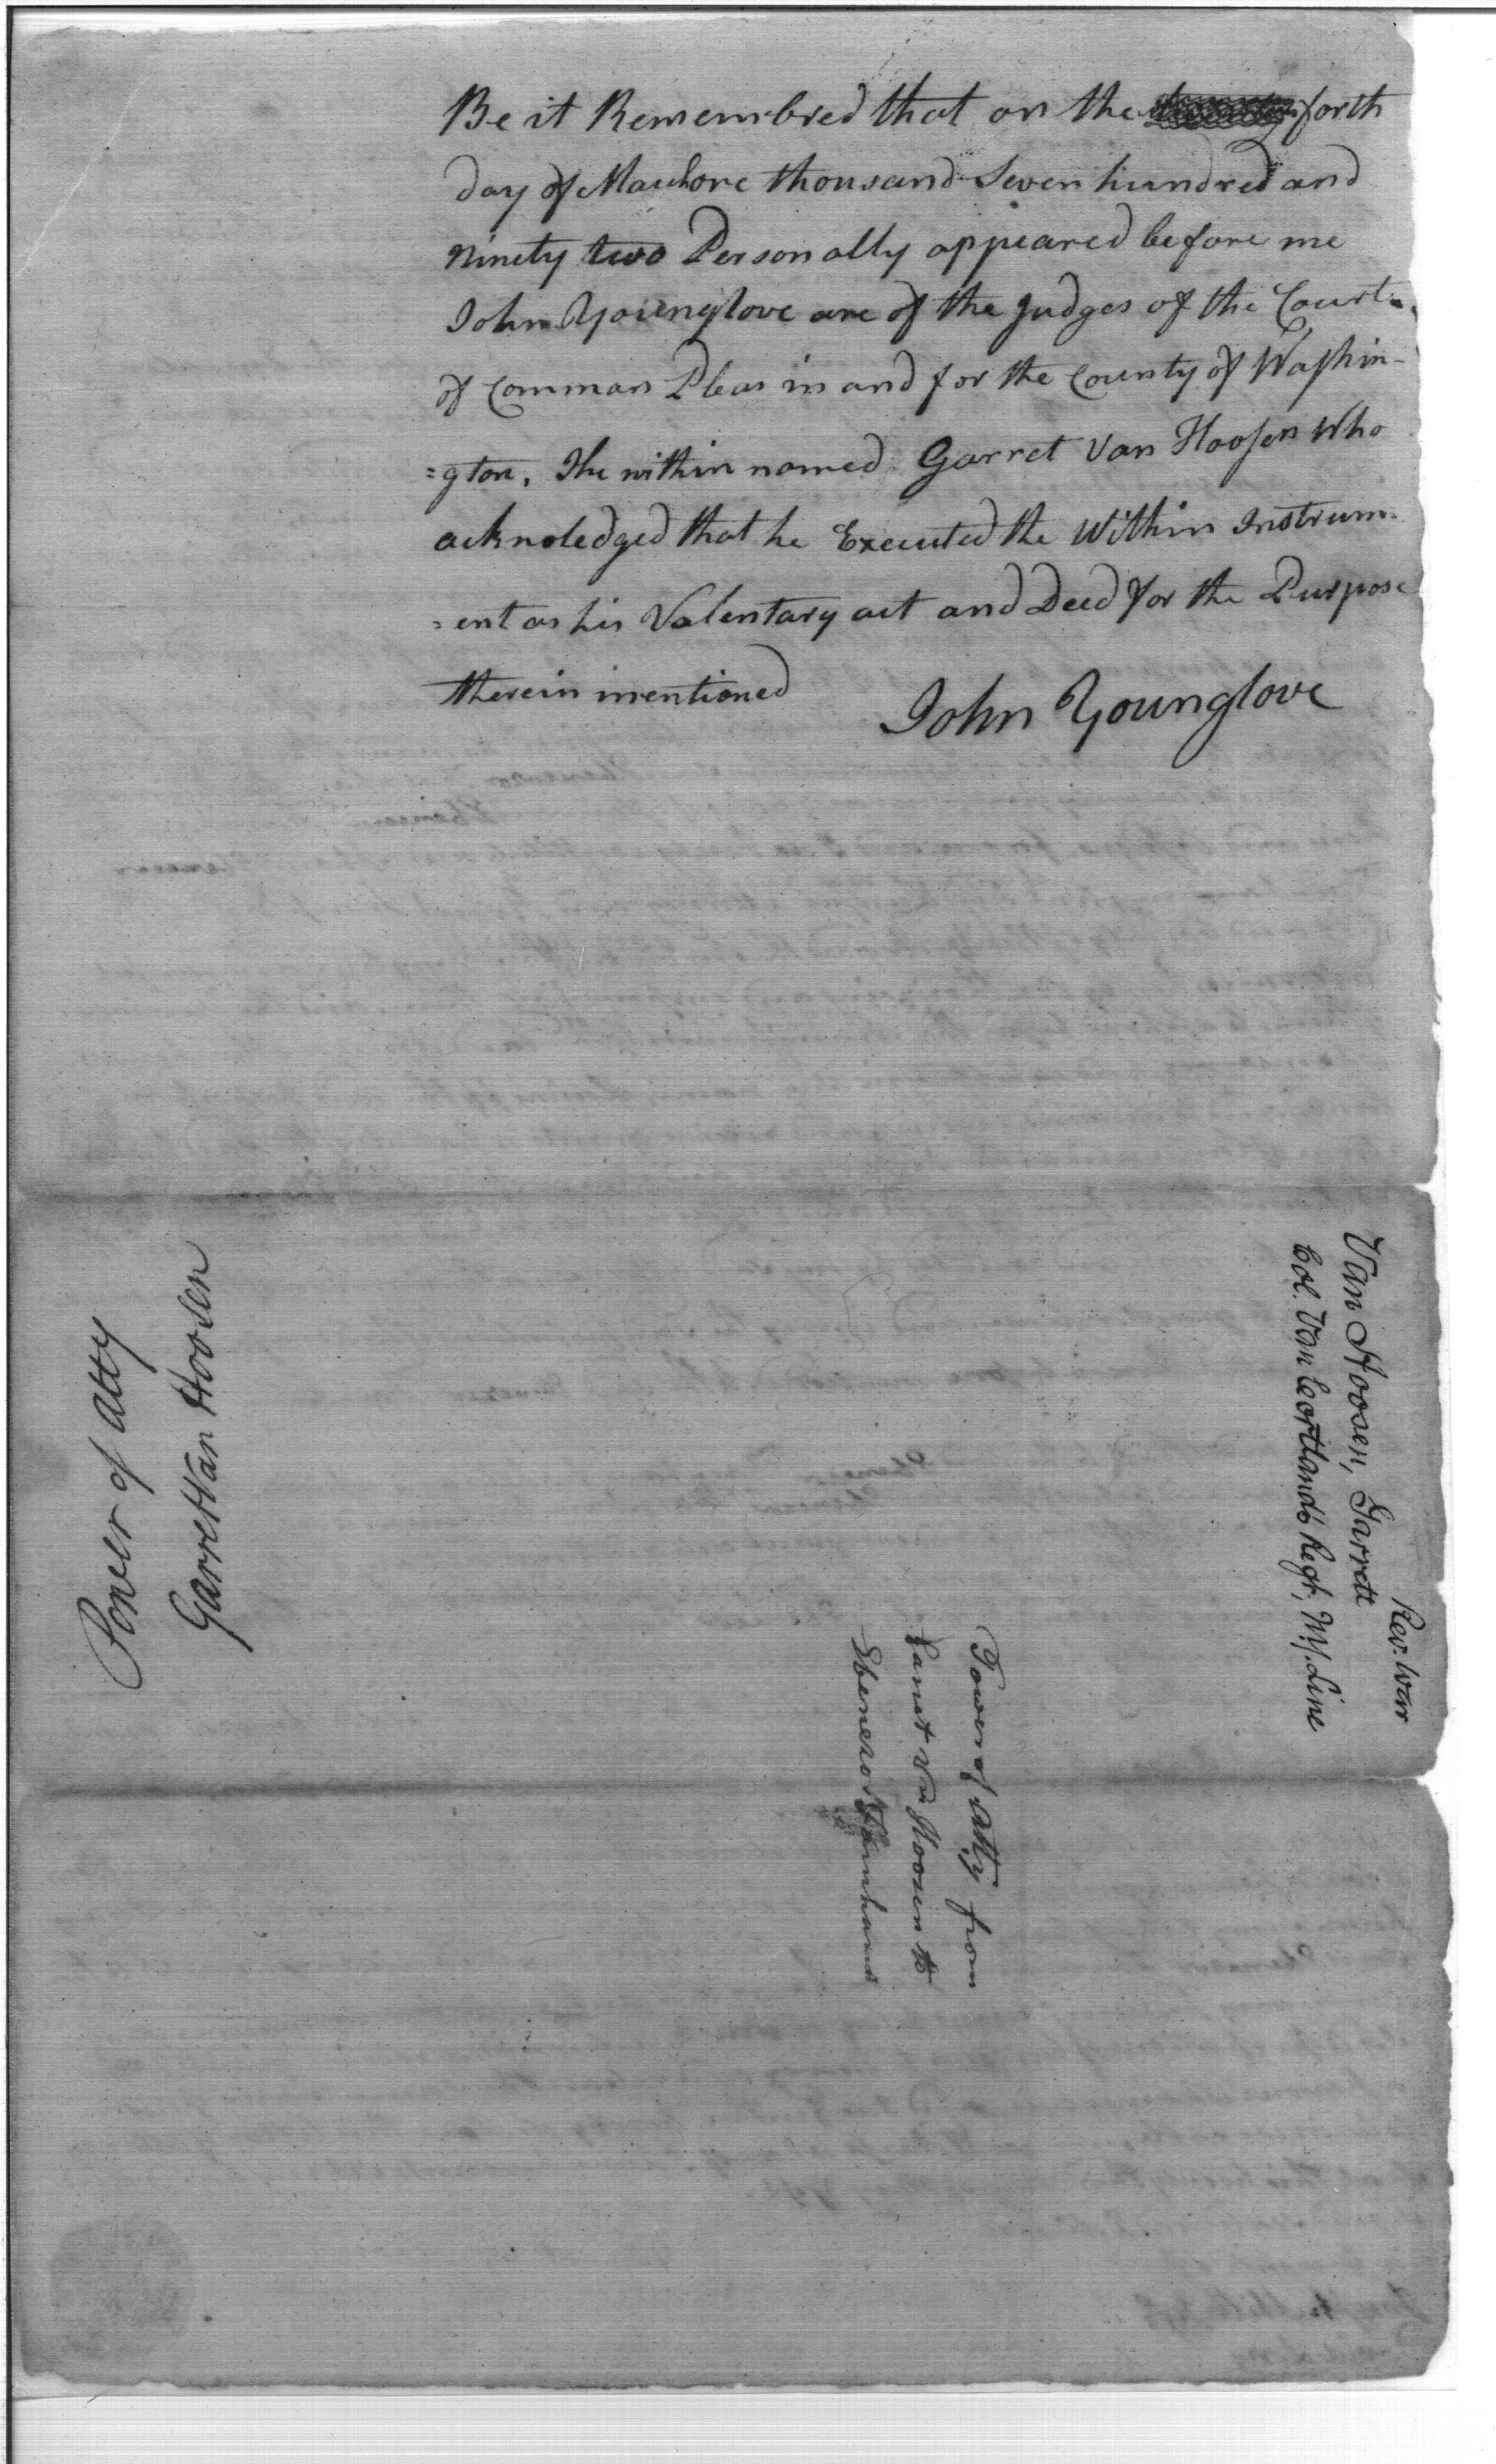 Be it Remembred that on the forth
day of March one thousand Seven hundred and
Ninety two Personally appeared before me
John Younglove one of the Judges of the Court
of Common Pleas in and for the County of Washin-
=gton, The within named Garret Van Hoosen Who
acknoledged that he Executed the Within Instrum=
=ent as his Volentary act and Deed for the Purpose
therein mentioned
John Younglove
Rev. War
Van Hoosen, Garrett
Col. Van Cortland's Regt, N.Y. Line
Power of Atty from
Garret Van Hoosen to
Ebenezer
Power of Atty
Garret Van Hoosen